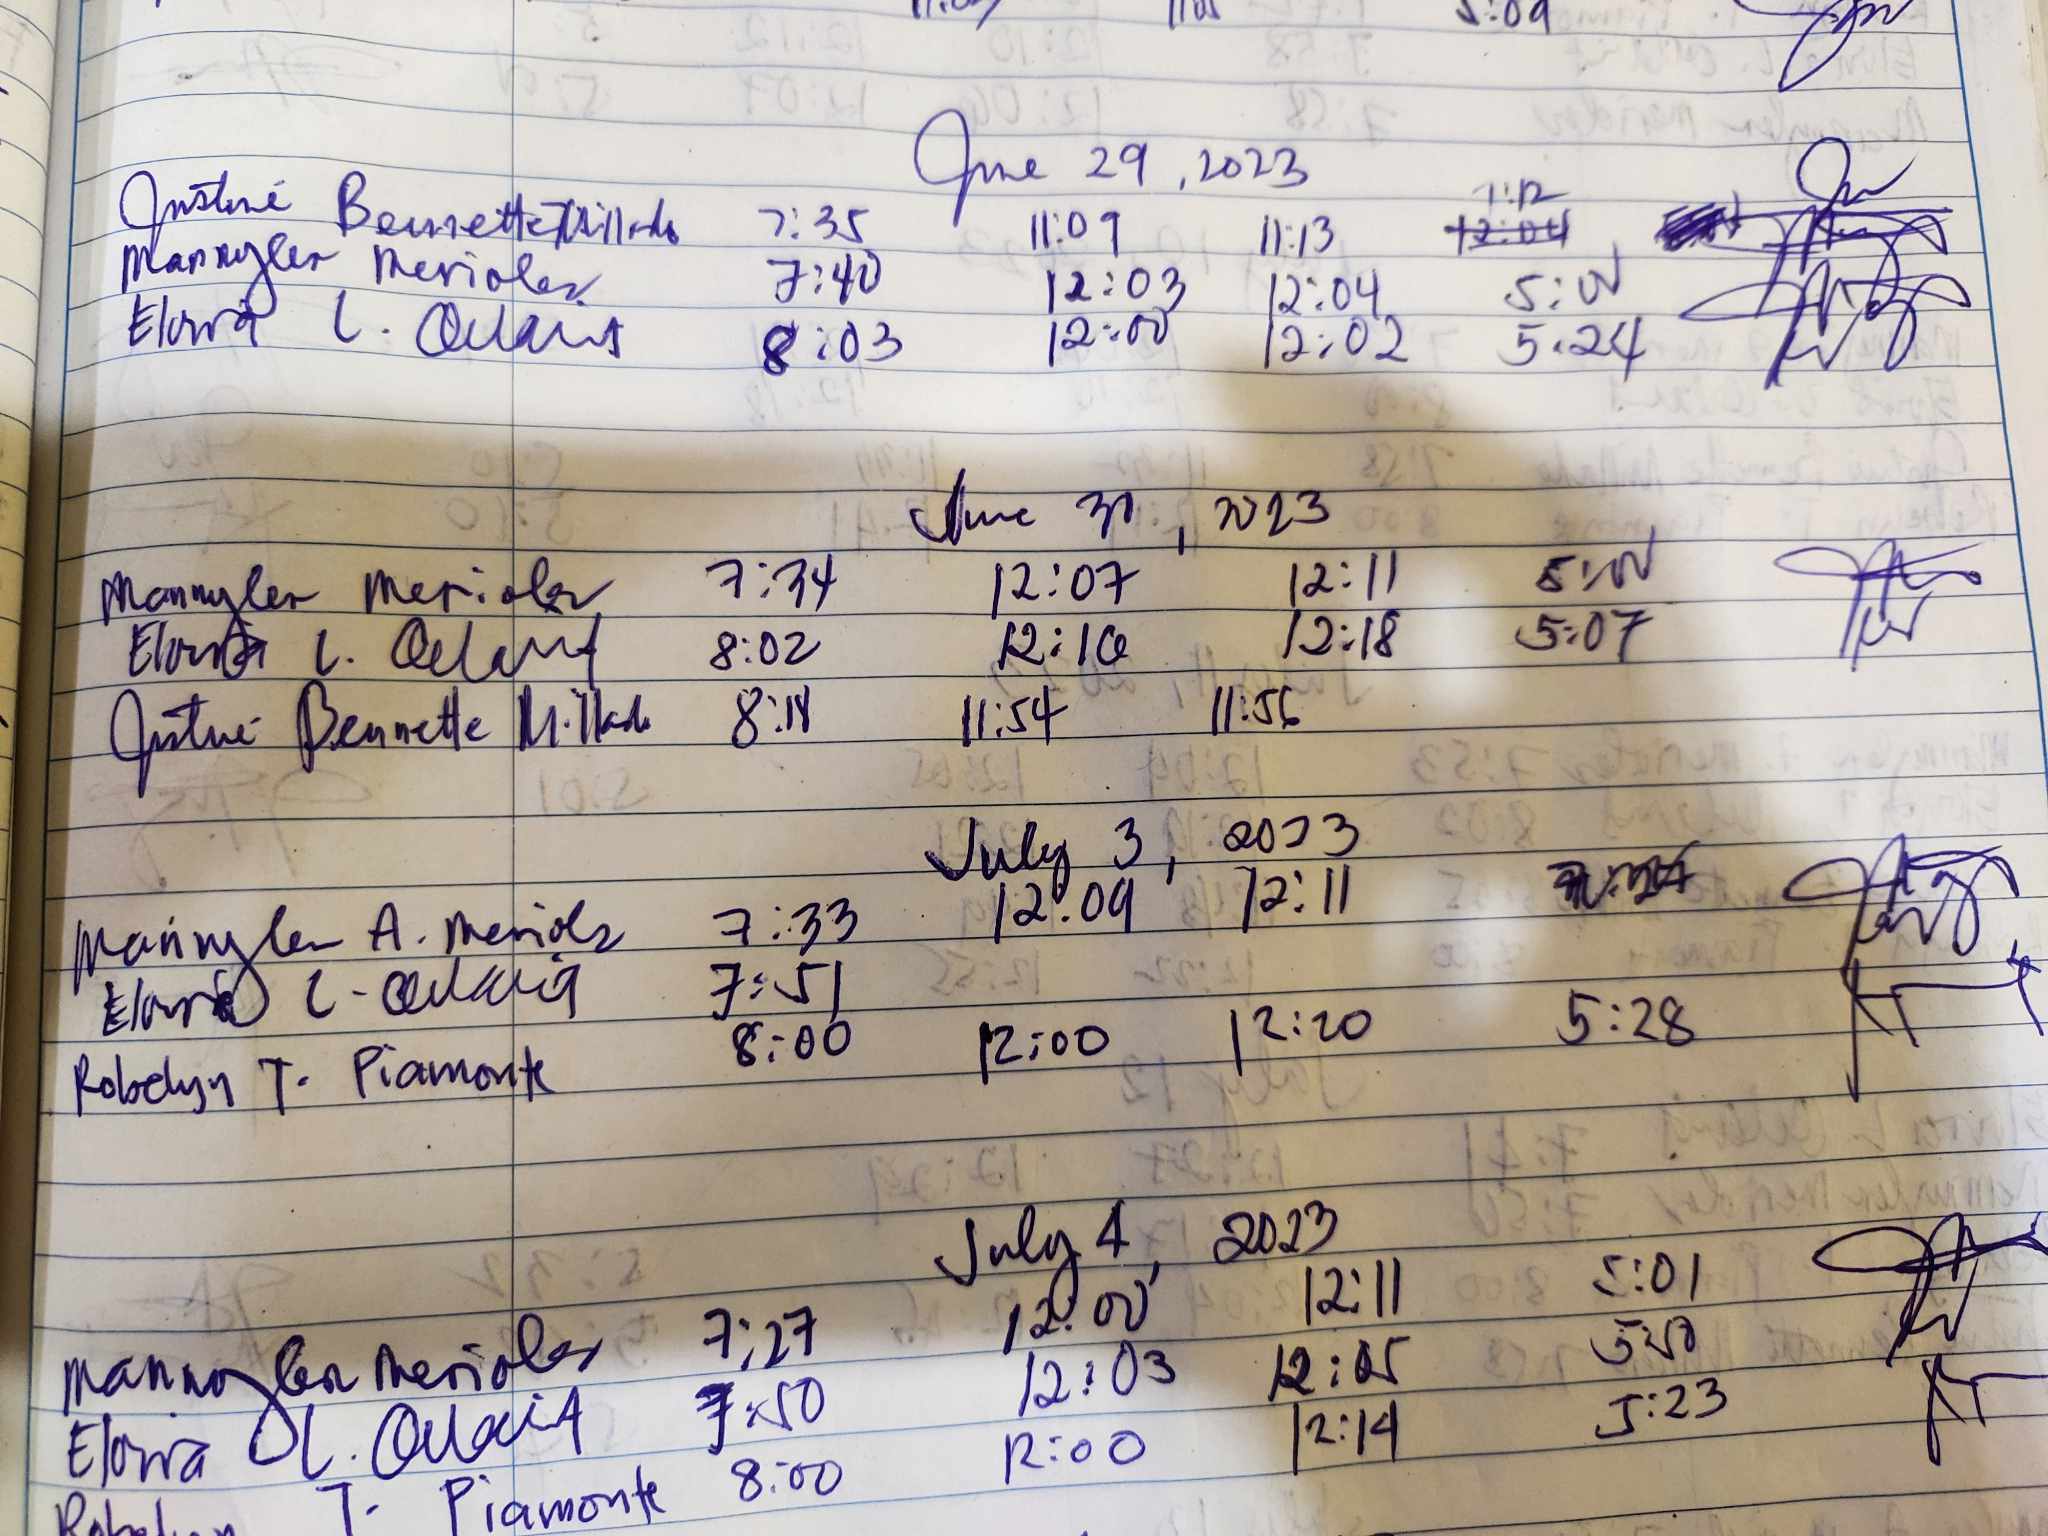 5:09
June 29, 2023
Justine Bennette Millado 7:35 11:09 11:13 1:12 12:04
Mannylen Merioles 7:40 12:03 12:04 5:00
Elovia L. 8:03 12:00 12:02 5:24
June 30, 2023
Mannylen Merioles 7:34 12:07 12:11 5:00
L. 8:02 12:16 12:18 5:07
Justine Bennette Millado 8:14 11:54 11:56
July 3, 2023
Mannylen A. Merioles 7:33 12:09 12:11
L. 7:51
Robelyn T. Piamonte 8:00 12:00 12:20 5:28
July 4, 2023
Mannylen Merioles 7:27 12:00 12:11 5:01
Elovia L. 7:50 12:03 12:05 5:00
Robelyn T. Piamonte 8:00 12:00 12:14 5:23